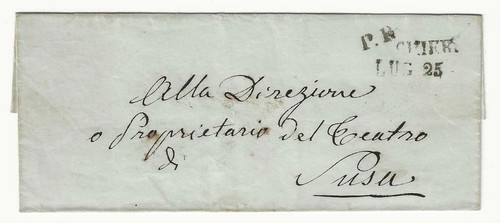 P.P.
CHIERI
LUG 25
Alla Direzione
o Proprietario del Teatro
di
Susa